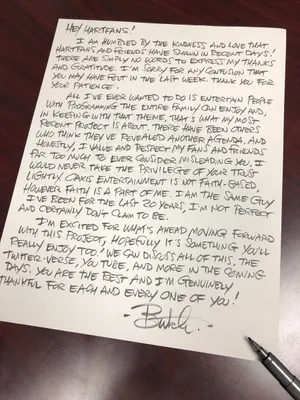 HEY HARTFANS!
I AM HUMBLED BY THE KINDNESS AND LOVE THAT
HARTFANS AND FRIENDS HAVE SHOWN IN RECENT DAYS!
THERE ARE SIMPLY NO WORDS TO EXPRESS MY THANKS
AND GRATITUDE. I'M SORRY FOR ANY CONFUSION THAT
YOU MAY HAVE FELT IN THE LAST WEEK. THANK YOU FOR
YOUR PATIENCE.
ALL I'VE EVER WANTED TO DO IS ENTERTAIN PEOPLE
WITH PROGRAMMING THE ENTIRE FAMILY CAN ENJOY AND,
IN KEEPING WITH THAT THEME, THAT'S WHAT MY MOST
RECENT PROJECT IS ABOUT. THERE HAVE BEEN OTHERS
WHO THINK THEY'VE REVEALED ANOTHER AGENDA. AND
HONESTLY, I VALUE AND RESPECT MY FANS AND FRIENDS
FAR TOO MUCH TO EVER CONSIDER MISLEADING YOU. I
WOULD NEVER TAKE THE PRIVILEGE OF YOUR TRUST
LIGHTLY. OAXIS ENTERTAINMENT IS NOT FAITH-BASED,
HOWEVER FAITH IS A PART OF ME. I AM THE SAME GUY
I'VE BEEN FOR THE LAST 20 YEARS, I'M NOT PERFECT
AND CERTAINLY DON'T CLAIM TO BE.
I'M EXCITED FOR WHAT'S AHEAD MOVING FORWARD
WITH THIS PROJECT, HOPEFULLY IT'S SOMETHING YOU'LL
REALLY ENJOY TOO! WE CAN DISCUSS ALL OF THIS, THE
TWITTER-VERSE, YOU TUBE, AND MORE IN THE COMING
DAYS. YOU ARE THE BEST AND I'M GENUINELY
THANKFUL FOR EACH AND EVERY ONE OF YOU!
-Butch-